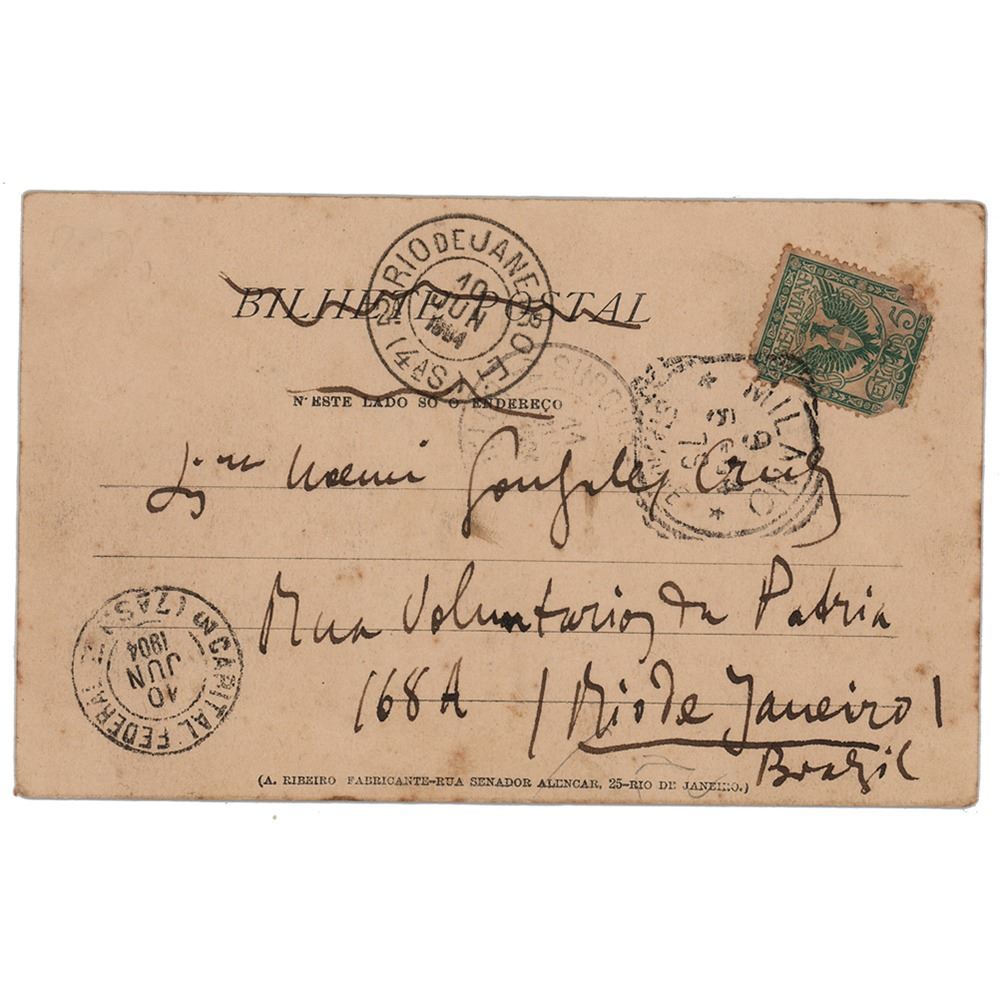 BILHETE POSTAL
N'ESTE LADO SÓ O ENDEREÇO
RIO DE JANEIRO
10
JUN
1904
(4ªS
POSTE ITALIANE
5
CENT
MILANO
Noemi Gonzales Cruz
Rua Voluntarios da Patria
168A / Rio de Janeiro /
Brazil
CAPITAL FEDERAL
(7ªS
10
JUN
1904
(A. RIBEIRO FABRICANTE-RUA SENADOR ALENCAR, 25-RIO DE JANEIRO.)